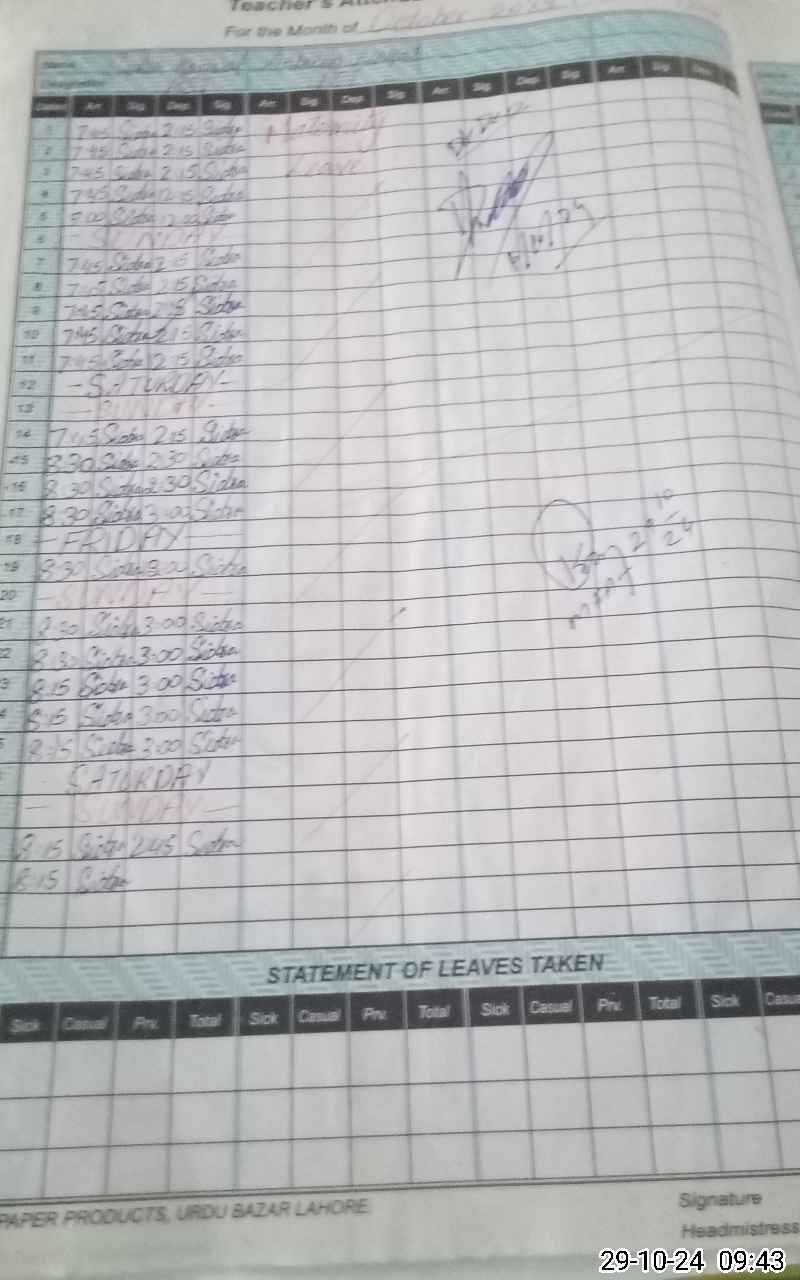 Teacher's
For the Month of October
Name
Designation
Dates Arr. Sig. Dep. Sig. Arr. Sig. Dep. Sig. Arr. Sig. Dep. Sig. Arr. Sig.
1 7:45 Sidra 2:15 Sidra Maternity
2 7:45 Sidra 2:15 Sidra Leave
3 7:45 Sidra 2:15 Sidra
4 7:45 Sidra 12:15 Sidra
5 8:00 Sidra 12:00 Sidra
6 - SUNDAY
7 7:45 Sidra 2:15 Sidra
8 7:45 Sidra 2:15 Sidra
9 7:45 Sidra 2:15 Sidra
10 7:45 Sidra 2:15 Sidra
11 7:45 Sidra 12:15 Sidra
12 - SATURDAY -
13 - SUNDAY -
14 7:45 Sidra 2:15 Sidra
15 8:30 Sidra 2:30 Sidra
16 8:30 Sidra 2:30 Sidra
17 8:30 Sidra 3:00 Sidra
18 - FRIDAY -
19 8:30 Sidra 3:00 Sidra
20 - SUNDAY -
21 8:30 Sidra 3:00 Sidra
22 8:30 Sidra 3:00 Sidra
3 8:15 Sidra 3:00 Sidra
8:15 Sidra 3:00 Sidra
8:15 Sidra 3:00 Sidra
SATURDAY
- SUNDAY -
8:15 Sidra 2:45 Sidra
8:15 Sidra
STATEMENT OF LEAVES TAKEN
Sick Casual Prv. Total Sick Casual Prv. Total Sick Casual Prv. Total Sick Casua
PAPER PRODUCTS, URDU BAZAR LAHORE.
Signature
Headmistress
29-10-24 09:43